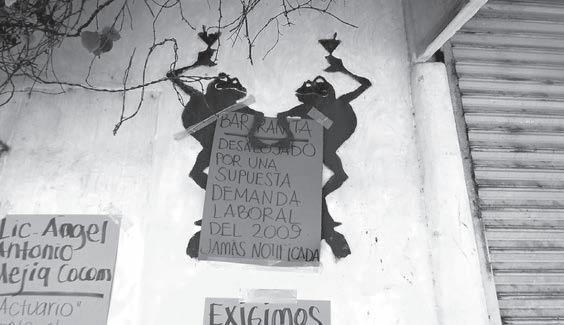 BAR RANITA
DESALOJADO
POR UNA
SUPUESTA
DEMANDA
LABORAL
DEL 2009
JAMAS NOTIFICADA
Lic. Angel
Antonio
Mejia Cocom
"Actuario"
EXIGIMOS